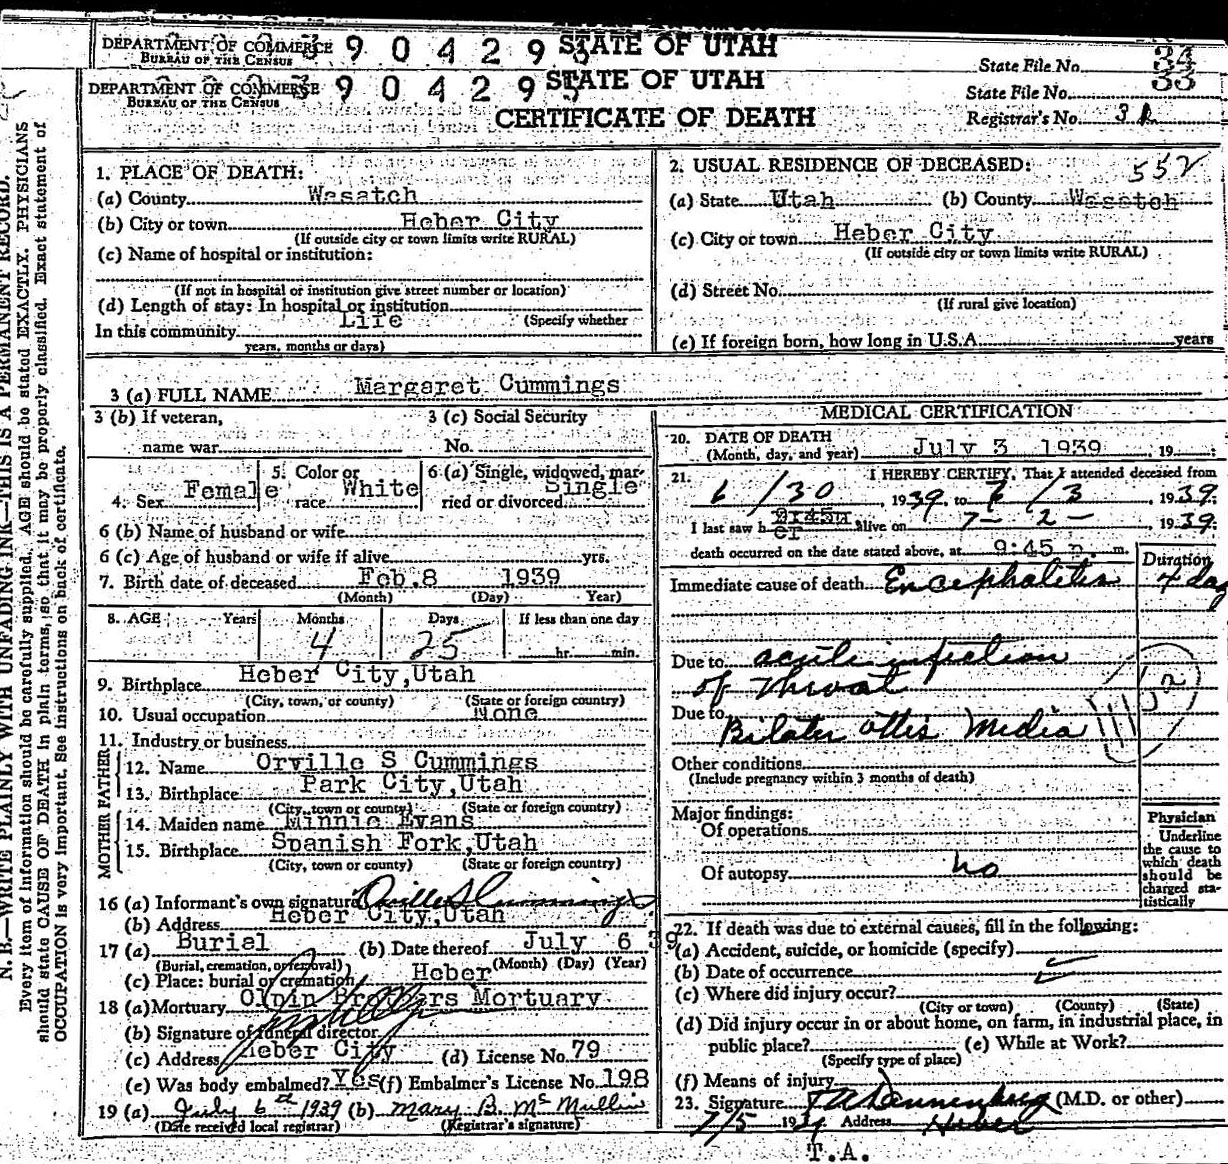 DEPARTMENT OF COMMERCE 9 0 4 2 9 STATE OF UTAH
BUREAU OF THE CENSUS
State File No. 34
DEPARTMENT OF COMMERSE 9 0 4 2 9 STATE OF UTAH
BUREAU OF THE CENSUS
State File No. 33
CERTIFICATE OF DEATH
Registrar's No. 3
N. B.—WRITE PLAINLY WITH UNFADING INK—THIS IS A PERMANENT RECORD.
Every item of information should be carefully supplied. AGE should be stated EXACTLY. PHYSICIANS
should state CAUSE OF DEATH in plain terms, so that it may be properly classified. Exact statement of
OCCUPATION is very important. See instructions on back of certificate.
1. PLACE OF DEATH:
(a) County Wasatch
(b) City or town Heber City
(If outside city or town limits write RURAL)
(c) Name of hospital or institution:
(If not in hospital or institution give street number or location)
(d) Length of stay: In hospital or institution
(Specify whether
In this community Life
years, months or days)
2. USUAL RESIDENCE OF DECEASED: 552
(a) State Utah (b) County Wasatch
(c) City or town Heber City
(If outside city or town limits write RURAL)
(d) Street No.
(If rural give location)
(e) If foreign born, how long in U.S.A. years
3 (a) FULL NAME Margaret Cummings
3 (b) If veteran, name war
3 (c) Social Security No.
4. Sex Female
5. Color or race White
6 (a) Single, widowed, married or divorced Single
6 (b) Name of husband or wife
6 (c) Age of husband or wife if alive yrs.
7. Birth date of deceased Feb.8 1939
(Month) (Day) Year)
8. AGE Years Months Days If less than one day
4 25 hr. min.
9. Birthplace Heber City,Utah
(City, town, or county) (State or foreign country)
10. Usual occupation None
11. Industry or business
FATHER
12. Name Orville S Cummings
13. Birthplace Park City,Utah
(City, town or county) (State or foreign country)
MOTHER
14. Maiden name Minnie Evans
15. Birthplace Spanish Fork,Utah
(City, town or county) (State or foreign country)
16 (a) Informant's own signature Orville S Cummings
(b) Address Heber City,Utah
17 (a) Burial (b) Date thereof July 6 39
(Burial, cremation, or removal) (Month) (Day) (Year)
(c) Place: burial or cremation Heber
18 (a) Mortuary Olpin Brothers Mortuary
(b) Signature of funeral director
(c) Address Heber City (d) License No. 79
(e) Was body embalmed? Yes (f) Embalmer's License No. 198
19 (a) July 6th 1939 (b) Mary B. McMullin
(Date received local registrar) (Registrar's signature)
MEDICAL CERTIFICATION
20. DATE OF DEATH
(Month, day, and year) July 3 1939, 19
21. I HEREBY CERTIFY, That I attended deceased from
6/30, 1939, to 7/3, 1939.
I last saw her alive on 7-2-, 1939.
death occurred on the date stated above, at 9:45 p. m.
Duration
Immediate cause of death Encephalitis 4 day
Due to acute infection
of Throat
Due to
Bilater ottis Media
Other conditions
(Include pregnancy within 3 months of death)
Major findings:
Of operations
Of autopsy no
Physician
Underline
the cause to
which death
should be
charged sta-
tistically
22. If death was due to external causes, fill in the following:
(a) Accident, suicide, or homicide (specify)
(b) Date of occurrence
(c) Where did injury occur?
(City or town) (County) (State)
(d) Did injury occur in or about home, on farm, in industrial place, in
public place? (e) While at Work?
(Specify type of place)
(f) Means of injury
23. Signature Dannenberg (M.D. or other)
7/5 1939 Address Heber
T.A.